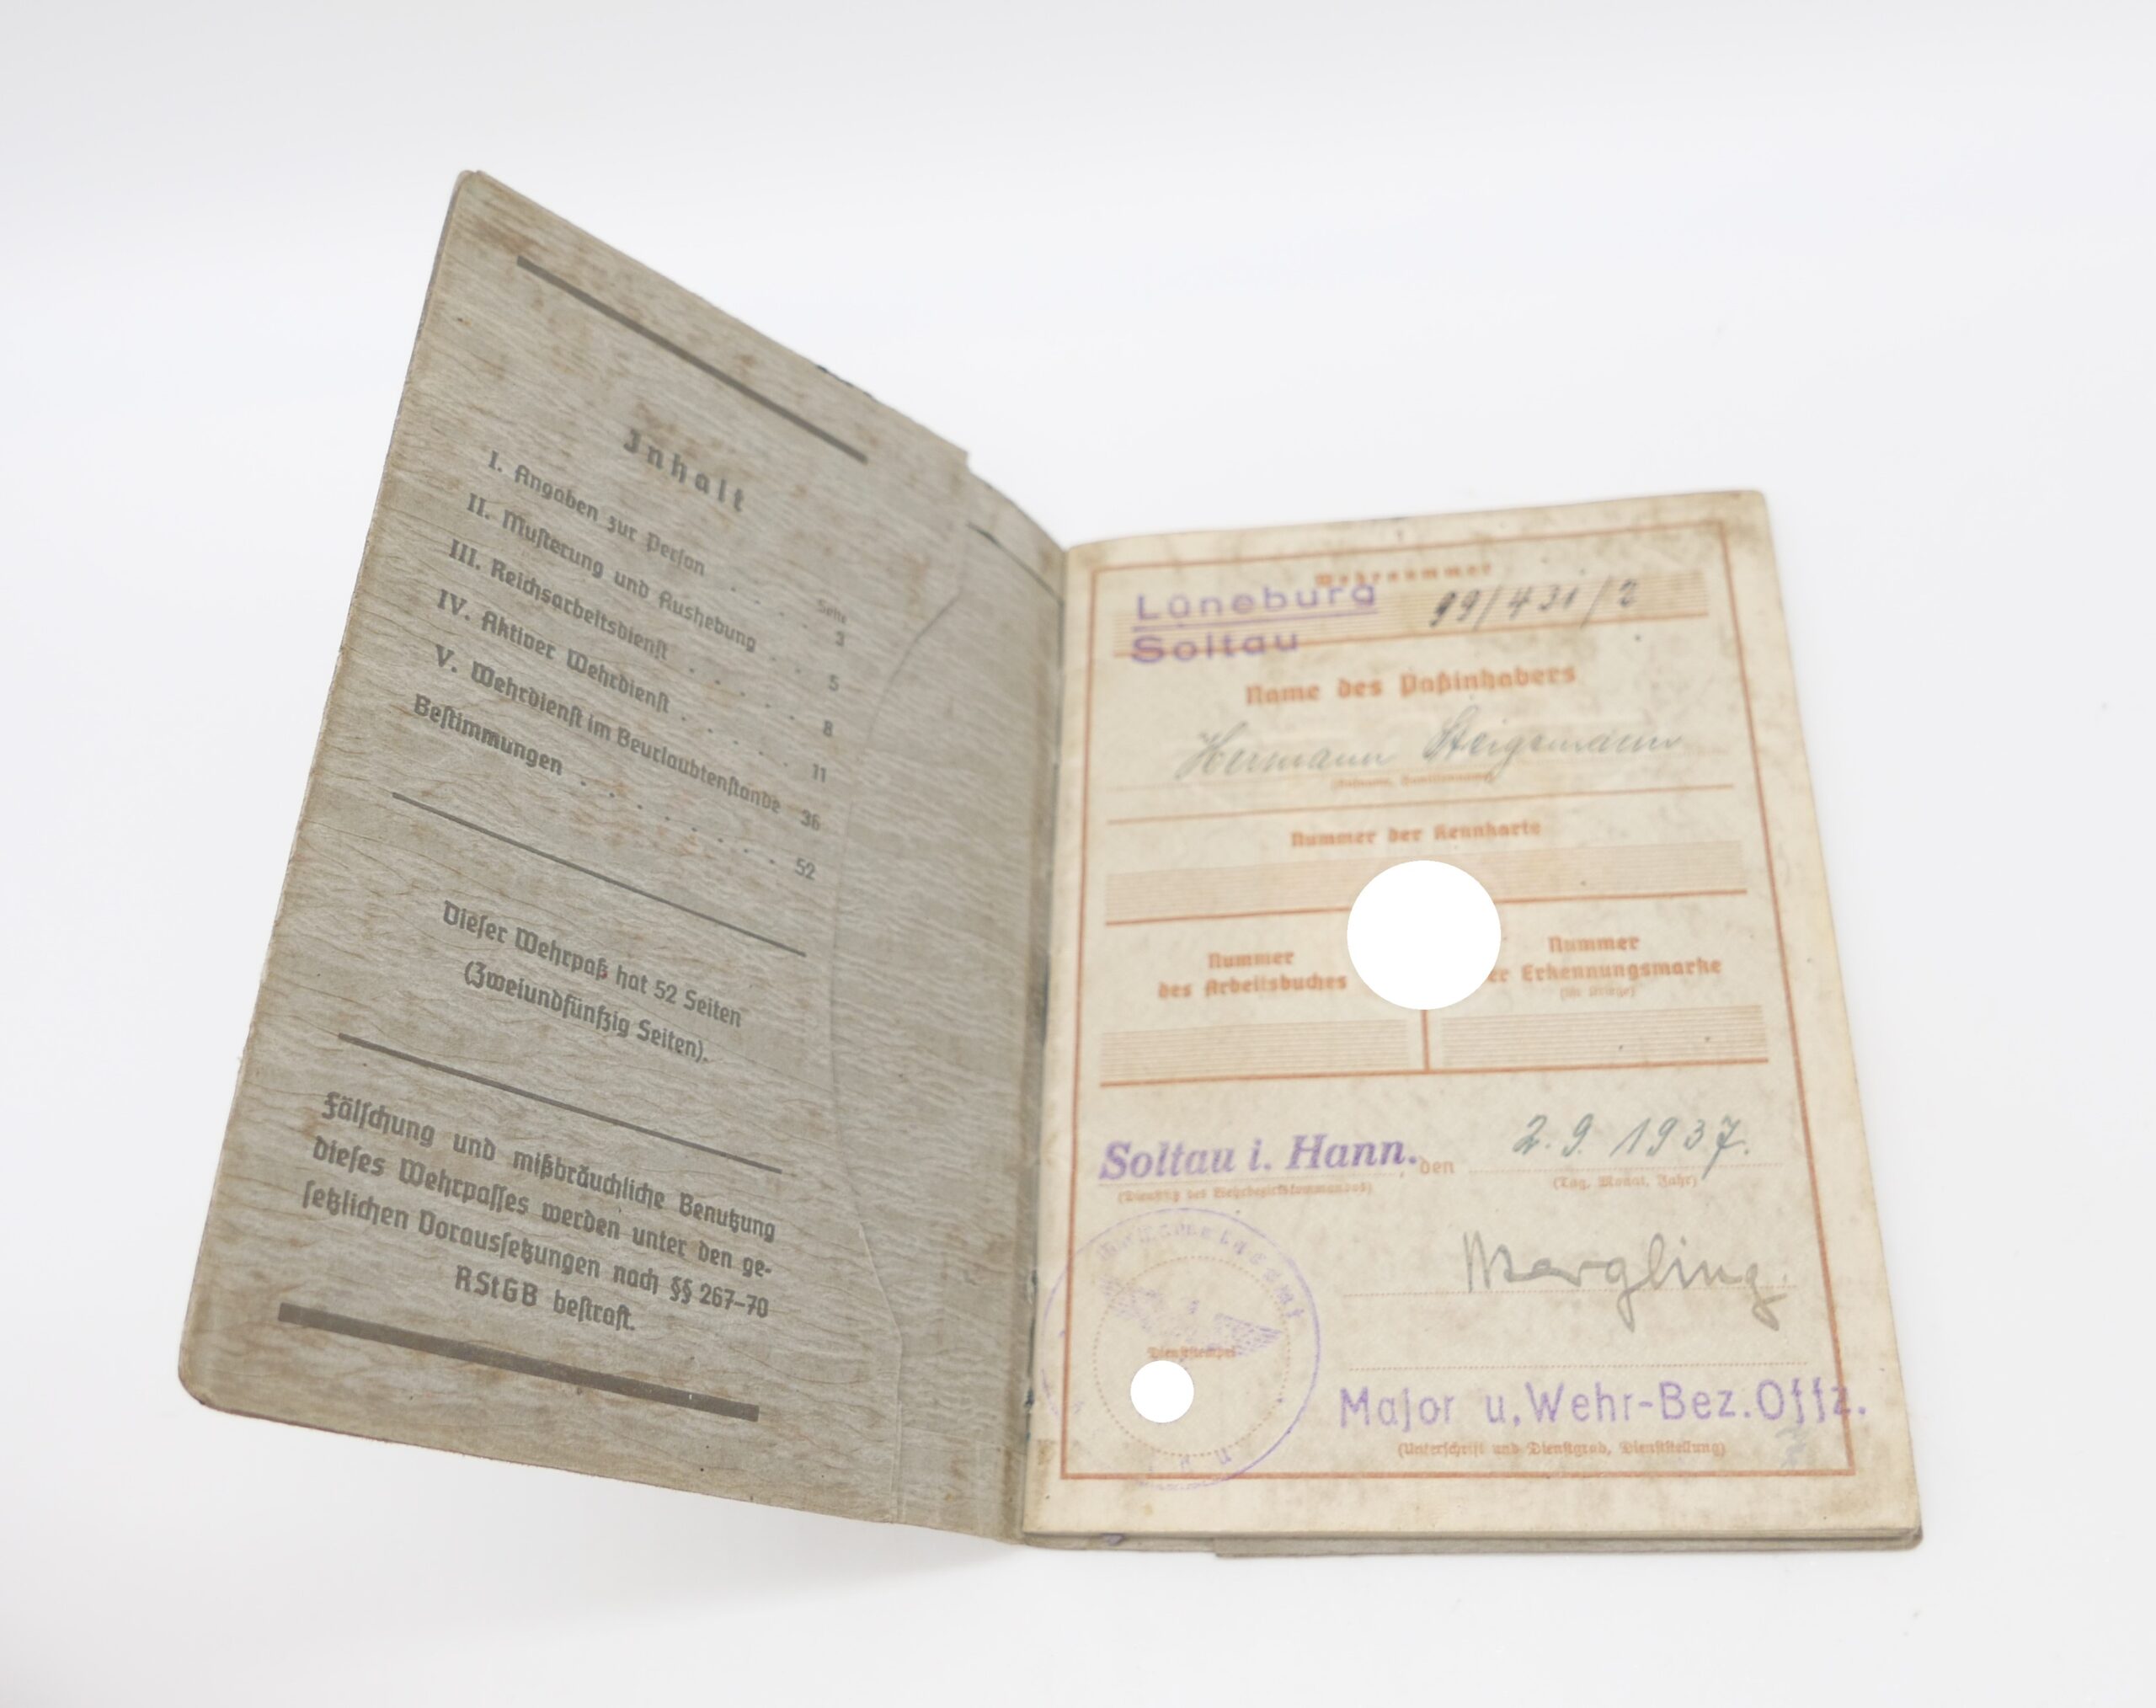 Inhalt
Seite
I. Angaben zur Person . . . . . 3
II. Musterung und Aushebung . . 5
III. Reichsarbeitsdienst . . . . . 8
IV. Aktiver Wehrdienst . . . . . 11
V. Wehrdienst im Beurlaubtenstande 36
Bestimmungen . . . . . . . . 52
Dieser Wehrpaß hat 52 Seiten
(Zweiundfünfzig Seiten).
Fälschung und mißbräuchliche Benutzung
dieses Wehrpasses werden unter den ge-
setzlichen Voraussetzungen nach §§ 267-70
RStGB bestraft.
Wehrnummer
Lüneburg 99/431/2
Soltau
Name des Paßinhabers
Hermann
Nummer der Kennkarte
Nummer
des Arbeitsbuches
Nummer
er Erkennungsmarke
Soltau i. Hann., den 2.9.1937.
(Dienstsitz des Wehrbezirkskommandos) (Tag, Monat, Jahr)
Dienststempel
Major u. Wehr-Bez.Offz.
(Unterschrift und Dienstgrad, Dienststellung)